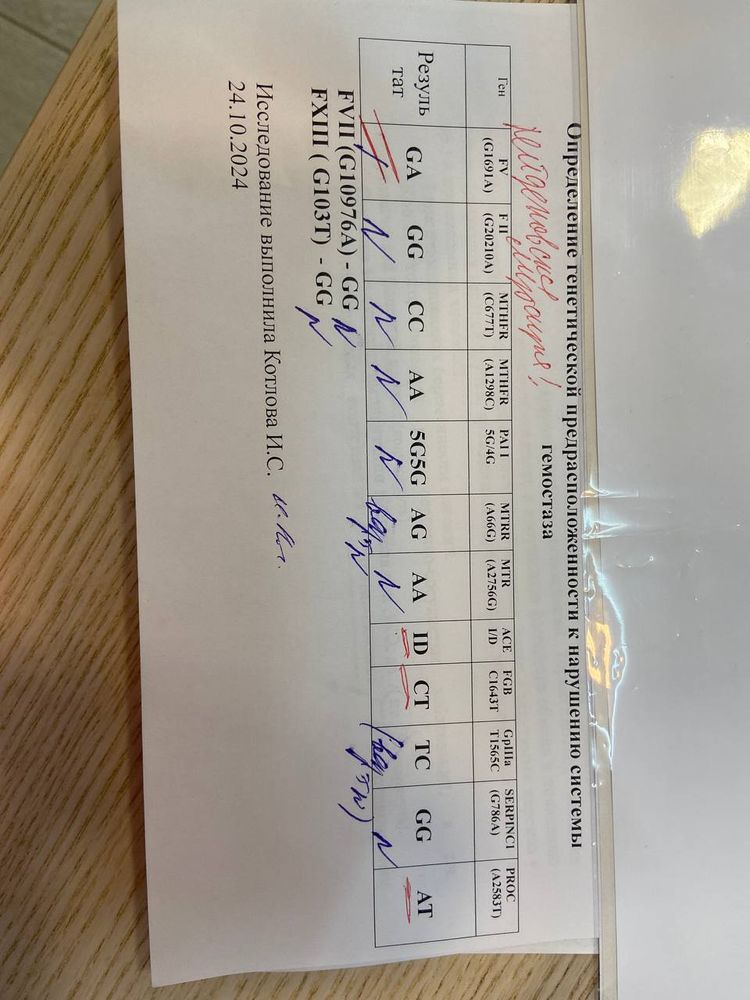 Определение генетической предрасположенности к нарушению системы
гемостаза
Лейденовская мутация!
Ген FV (G1691A) F II (G20210A) MTHFR (C677T) MTHFR (A1298C) PAI I 5G/4G MTRR (A66G) MTR (A2756G) ACE I/D FGB C1643T GpIIIa T1565C SERPINC1 (G786A) PROC (A2583T)
Резуль тат GA GG CC AA 5G5G AG AA ID CT TC GG AT
N N N N N N
FVII (G10976A) - GG N
FXIII ( G103T) - GG N
Исследование выполнила Котлова И.С.
24.10.2024